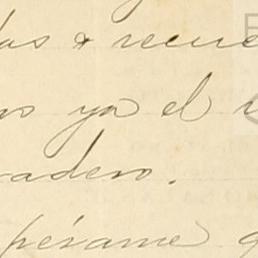 das & recue
os ya el
radero.
pésame q